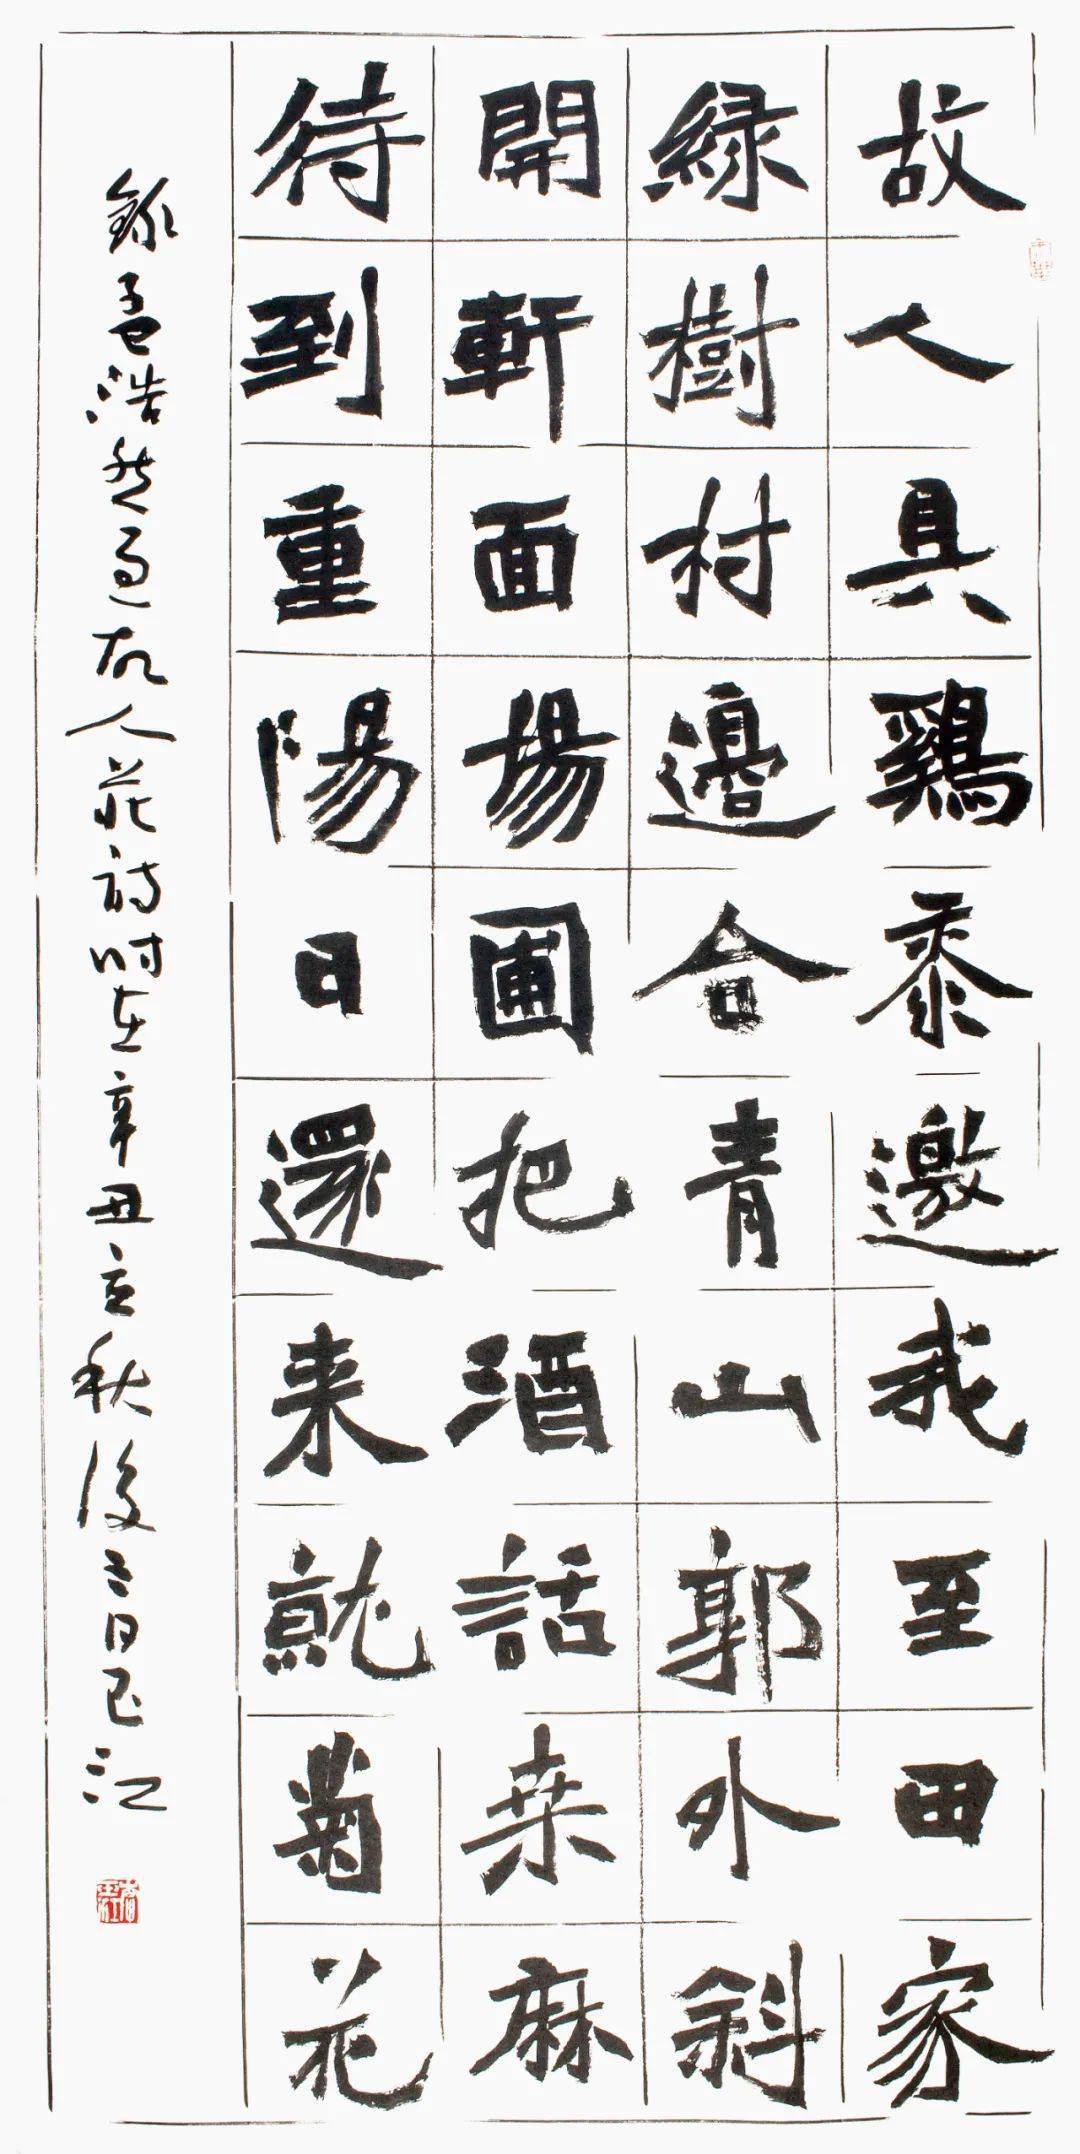 故人具鷄黍邀我至田家
緑樹村邊合青山郭外斜
開軒面場圃把酒話桒麻
待到重陽日還来就菊花
錄孟浩然過故人莊詩時在辛丑立秋後二日巳江